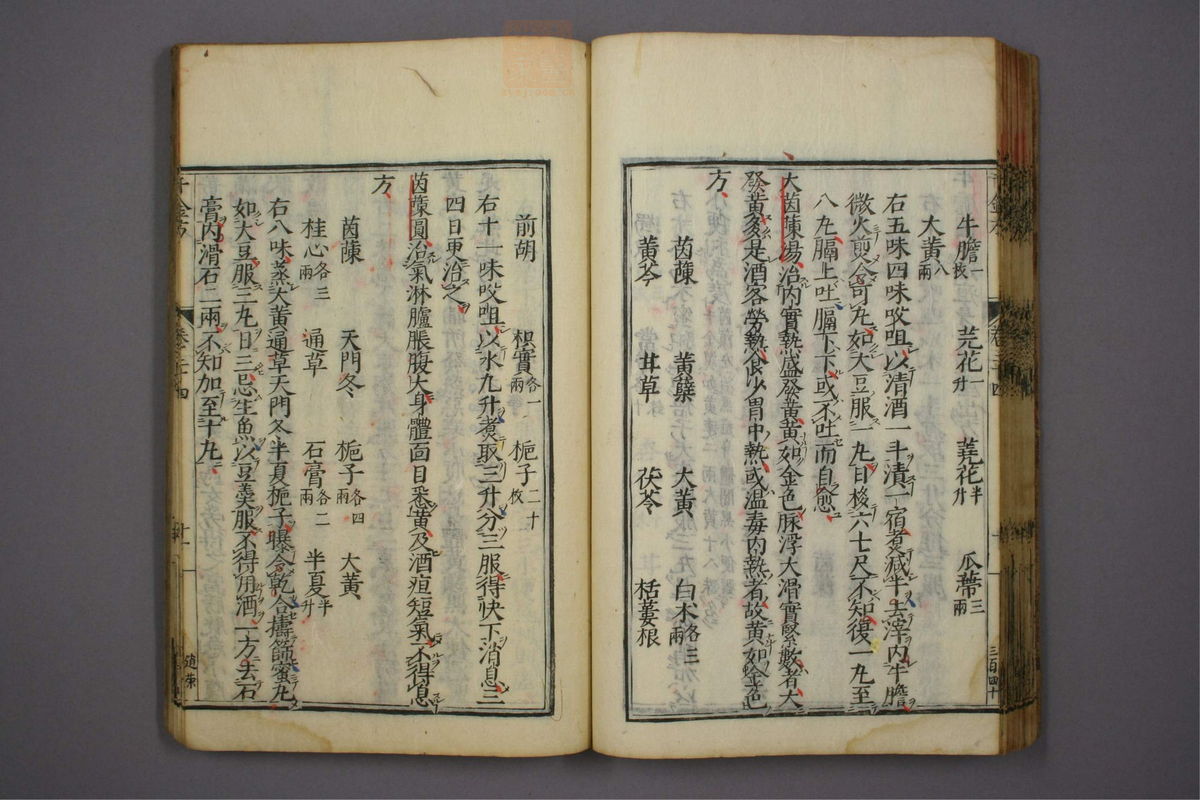 牛膽一枚　芫花一升　蕘花半升　瓜蔕三兩
大黃八兩
右五味四味㕮咀以清酒一斗漬一宿煮減半去滓內牛膽
微火煎令可丸如大豆服一丸日移六七尺不知復一丸至
八丸膈上吐膈下下或不吐而自愈
大茵蔯湯治內實熱盛發黃黃如金色脉浮大滑實緊數者夫
發黃多是酒客勞熱食少胃中熱或溫毒內熱者故黃如金色
方
茵蔯　黃蘗　大黃　白术各三兩
黃芩　甘草　茯苓　栝蔞根
前胡　枳實各一兩　梔子二十枚
右十一味㕮咀以水九升煮取三升分三服得快下消息三
四日更治之
茵蔯圓治氣淋臚脹腹大身體面目悉黃及酒疸短氣不得息
方
茵蔯　天門冬　梔子各四兩　大黃
桂心各三兩　通草　石膏各二兩　半夏半升
右八味蒸大黃通草天門冬半夏梔子曝令乾合擣篩蜜丸
如大豆服三丸日三忌生魚以豆羹服不得用酒一方去石
膏內滑石二兩不知加至十丸
千金方　卷三十四　十一
三百四十
趙榮